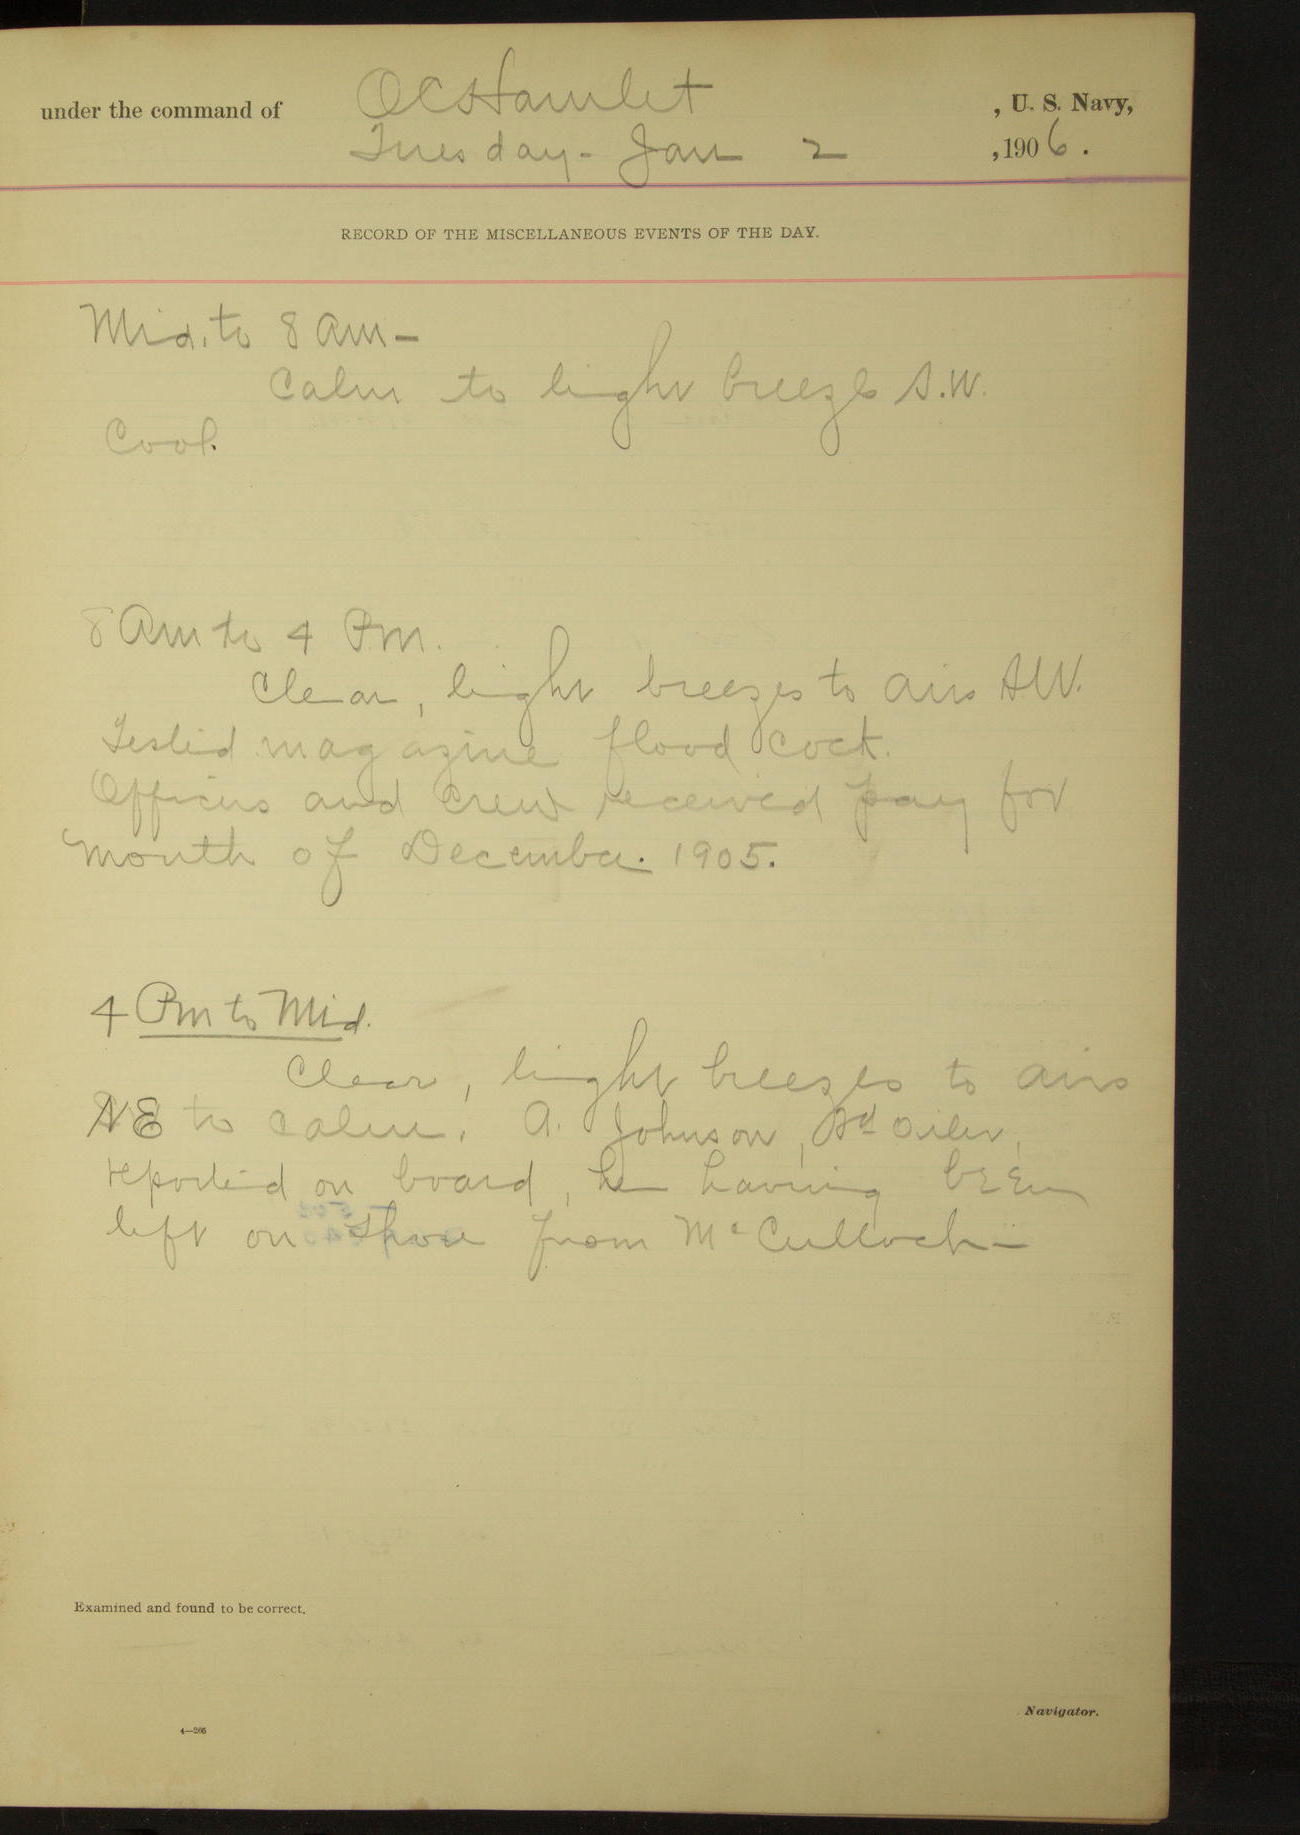 under the command of O C Hamlet , U. S. Navy,
Tuesday - Jan 2 , 1906.
RECORD OF THE MISCELLANEOUS EVENTS OF THE DAY.
Mid. to 8 am -
Calm to light breeze S.W.
Cool.
8 Am to 4 P.M.
Clear, light breezes to airs SW.
Tested magazine flood cock.
Officers and crew received pay for
month of December. 1905.
4 Pm to Mid.
Clear, light breezes to airs
NE to calm. A. Johnson, Sd Oiler,
reported on board, he having been
left on shore from McCulloch -
Examined and found to be correct.
Navigator.
4—266